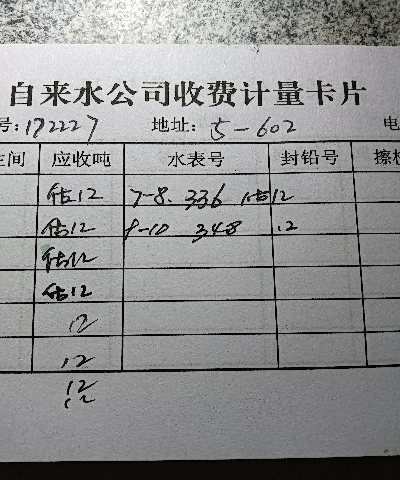 自来水公司收费计量卡片
号:172227 地址: 5-602 电
间 应收吨 水表号 封铅号 擦
估12 7-8. 336 估12
估12 9-10 348 .12
估12
估12
12
12
12
12